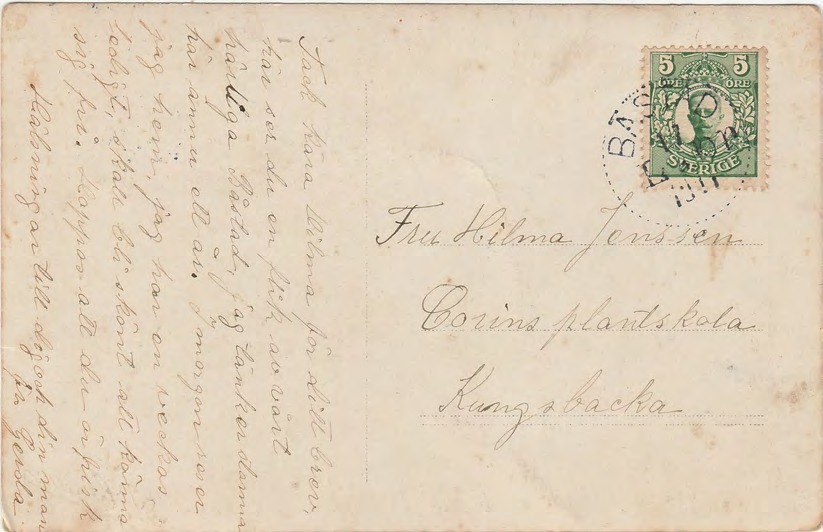 Tack kära Hilma för ditt brev,
här ser du en flick av vårt
härliga Båstad, jag tänker stanna
här ännu ett år. I morgon reser
jag hem, jag har en veckas
ledigt, skall bli skönt att känna
sig fri. Hoppas att du är frisk
Hälsningar till dig och din man
från Gerda.
5 5
ÖRE ÖRE
SVERIGE
BÅSTAD
Fru Hilma Jenssen
Corins plantskola
Kungsbacka